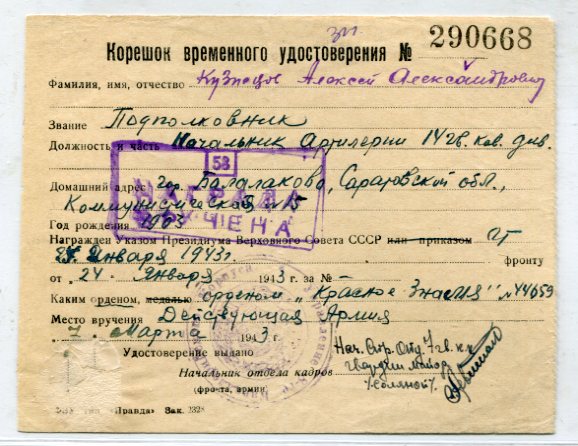 Корешок временного удостоверения № 290668
Фамилия, имя, отчество Кузнецов Алексей Александрович
Звание Подполковник
Должность и часть Начальник Артилерии 14 гв. кав. див.
53
НАГРАДА
ВРУЧЕНА
Домашний адрес гор. Балалаково, Саратовской обл.,
Коммунистическая 15
Год рождения 1903
Награжден Указом Президиума Верховного Совета СССР или приказом от
Января 1943 г. фронту
от 24 Января 1943 г. за №
Каким орденом, медалью орденом „Красное Знамя" №44659
Место вручения Действующая Армия
7 Марта 1943 г.
Удостоверение выдано
Нач. Стр. Отд 7 гв. к.к.
Начальник отдела кадров гвардии майор
(фронта, армии)
тип. „Правда" Зак. 2328